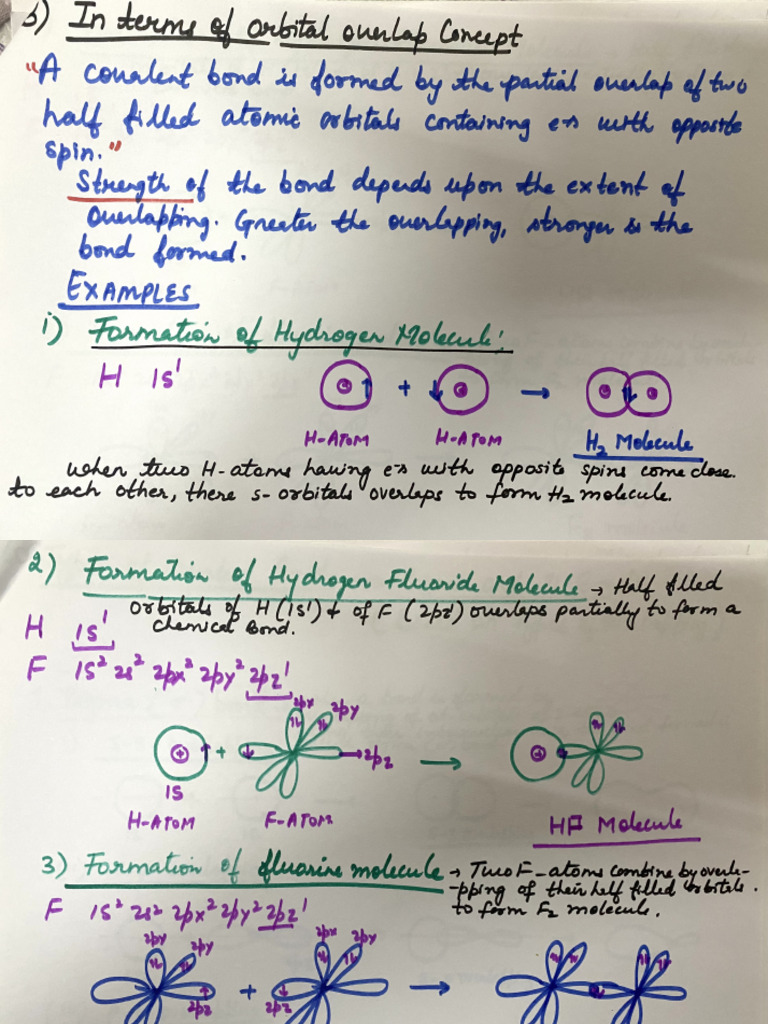 3) In terms of orbital overlap Concept
"A covalent bond is formed by the partial overlap of two
half filled atomic orbitals containing e-s with opposite
spin."
Strength of the bond depends upon the extent of
Overlapping. Greater the overlapping, stronger is the
bond formed.
EXAMPLES
1) Formation of Hydrogen Molecule:
H 1s¹ + →
H-ATOM H-ATOM H₂ Molecule
When two H-atoms having e-s with opposite spins come close
to each other, there s-orbitals overlaps to form H₂ molecule.
2) Formation of Hydrogen Fluoride Molecule → Half filled
orbitals of H (1s¹) & of F (2pz¹) overlaps partially to form a
chemical Bond.
H 1s¹
F 1s² 2s² 2px² 2py² 2pz¹
2px 2py
+ + → 2pz → +
1s
H-ATOM F-ATOM HF Molecule
3) Formation of fluorine molecule → Two F-atoms combine by overla-
-pping of their half filled orbitals.
to form F₂ molecule.
F 1s² 2s² 2px² 2py² 2pz¹
2py 2py 2px 2py
+ →
2pz 2pz